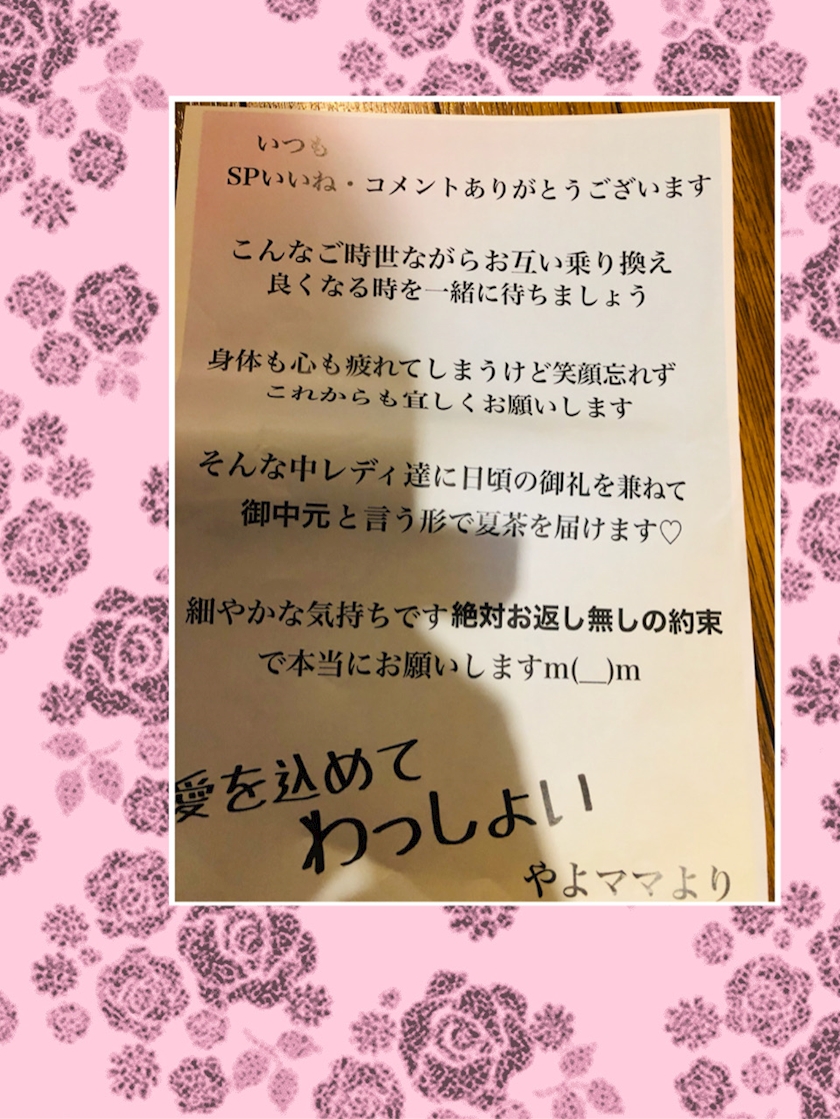 いつも
SPいいね・コメントありがとうございます
こんなご時世ながらお互い乗り換え
良くなる時を一緒に待ちましょう
身体も心も疲れてしまうけど笑顔忘れず
これからも宜しくお願いします
そんな中レディ達に日頃の御礼を兼ねて
御中元と言う形で夏茶を届けます♡
細やかな気持ちです絶対お返し無しの約束
で本当にお願いしますm(__)m
愛を込めて
わっしょい
やよママより